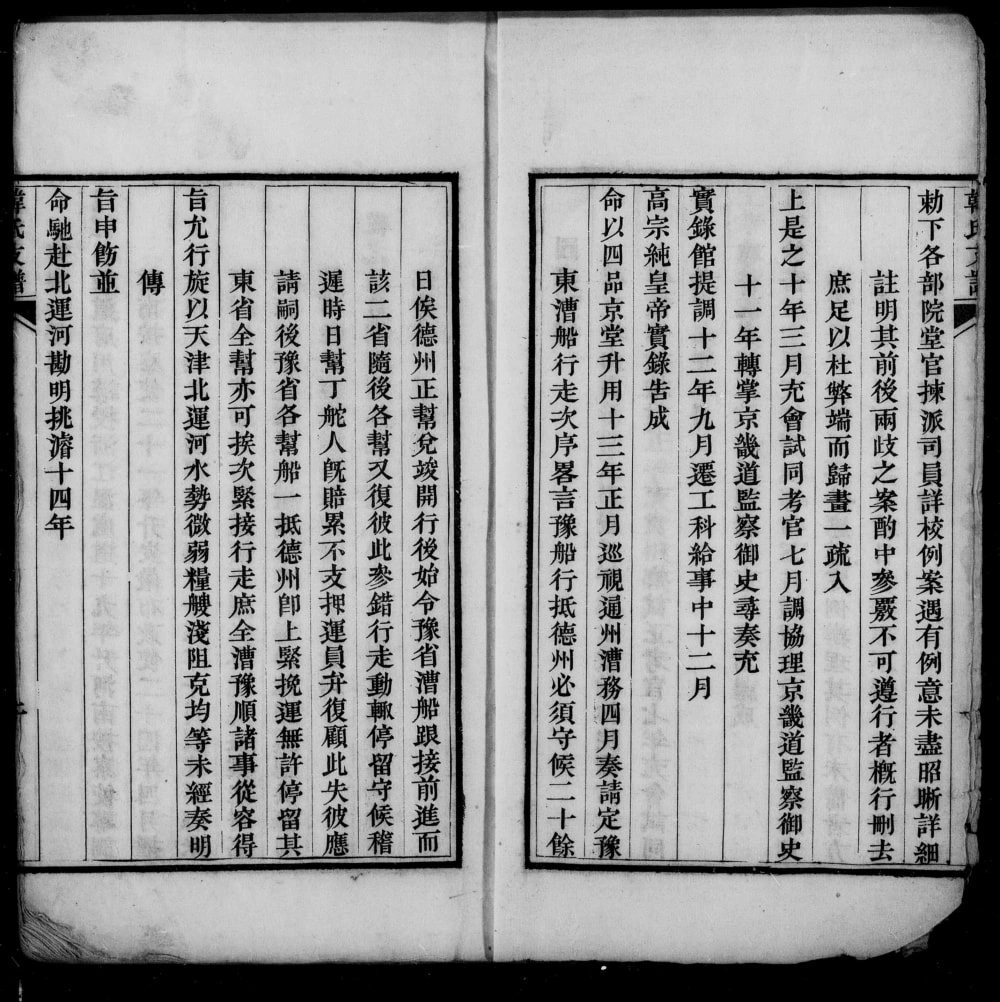 勅下各部院堂官揀派司員詳校例案遇有例意未盡昭晰詳細
註明其前後兩歧之案酌中參覈不可遵行者概行刪去
庶足以杜弊端而歸畫一疏入
上是之十年三月充會試同考官七月調協理京畿道監察御史
十一年轉掌京畿道監察御史尋奏充
實錄館提調十二年九月遷工科給事中十二月
高宗純皇帝實錄告成
命以四品京堂升用十三年正月巡視通州漕務四月奏請定豫
東漕船行走次序畧言豫船行抵德州必須守候二十餘
日俟德州正幫兌竣開行後始令豫省漕船跟接前進而
該二省隨後各幫又復彼此參錯行走動輒停留守候稽
遲時日幫丁舵人旣賠累不支押運員弁復顧此失彼應
請嗣後豫省各幫船一抵德州卽上緊挽運無許停留其
東省全幫亦可挨次緊接行走庶全漕豫順諸事從容得
旨允行旋以天津北運河水勢微弱糧艘淺阻克均等未經奏明
傳
旨申飭並
命馳赴北運河勘明挑濬十四年
韓氏支譜